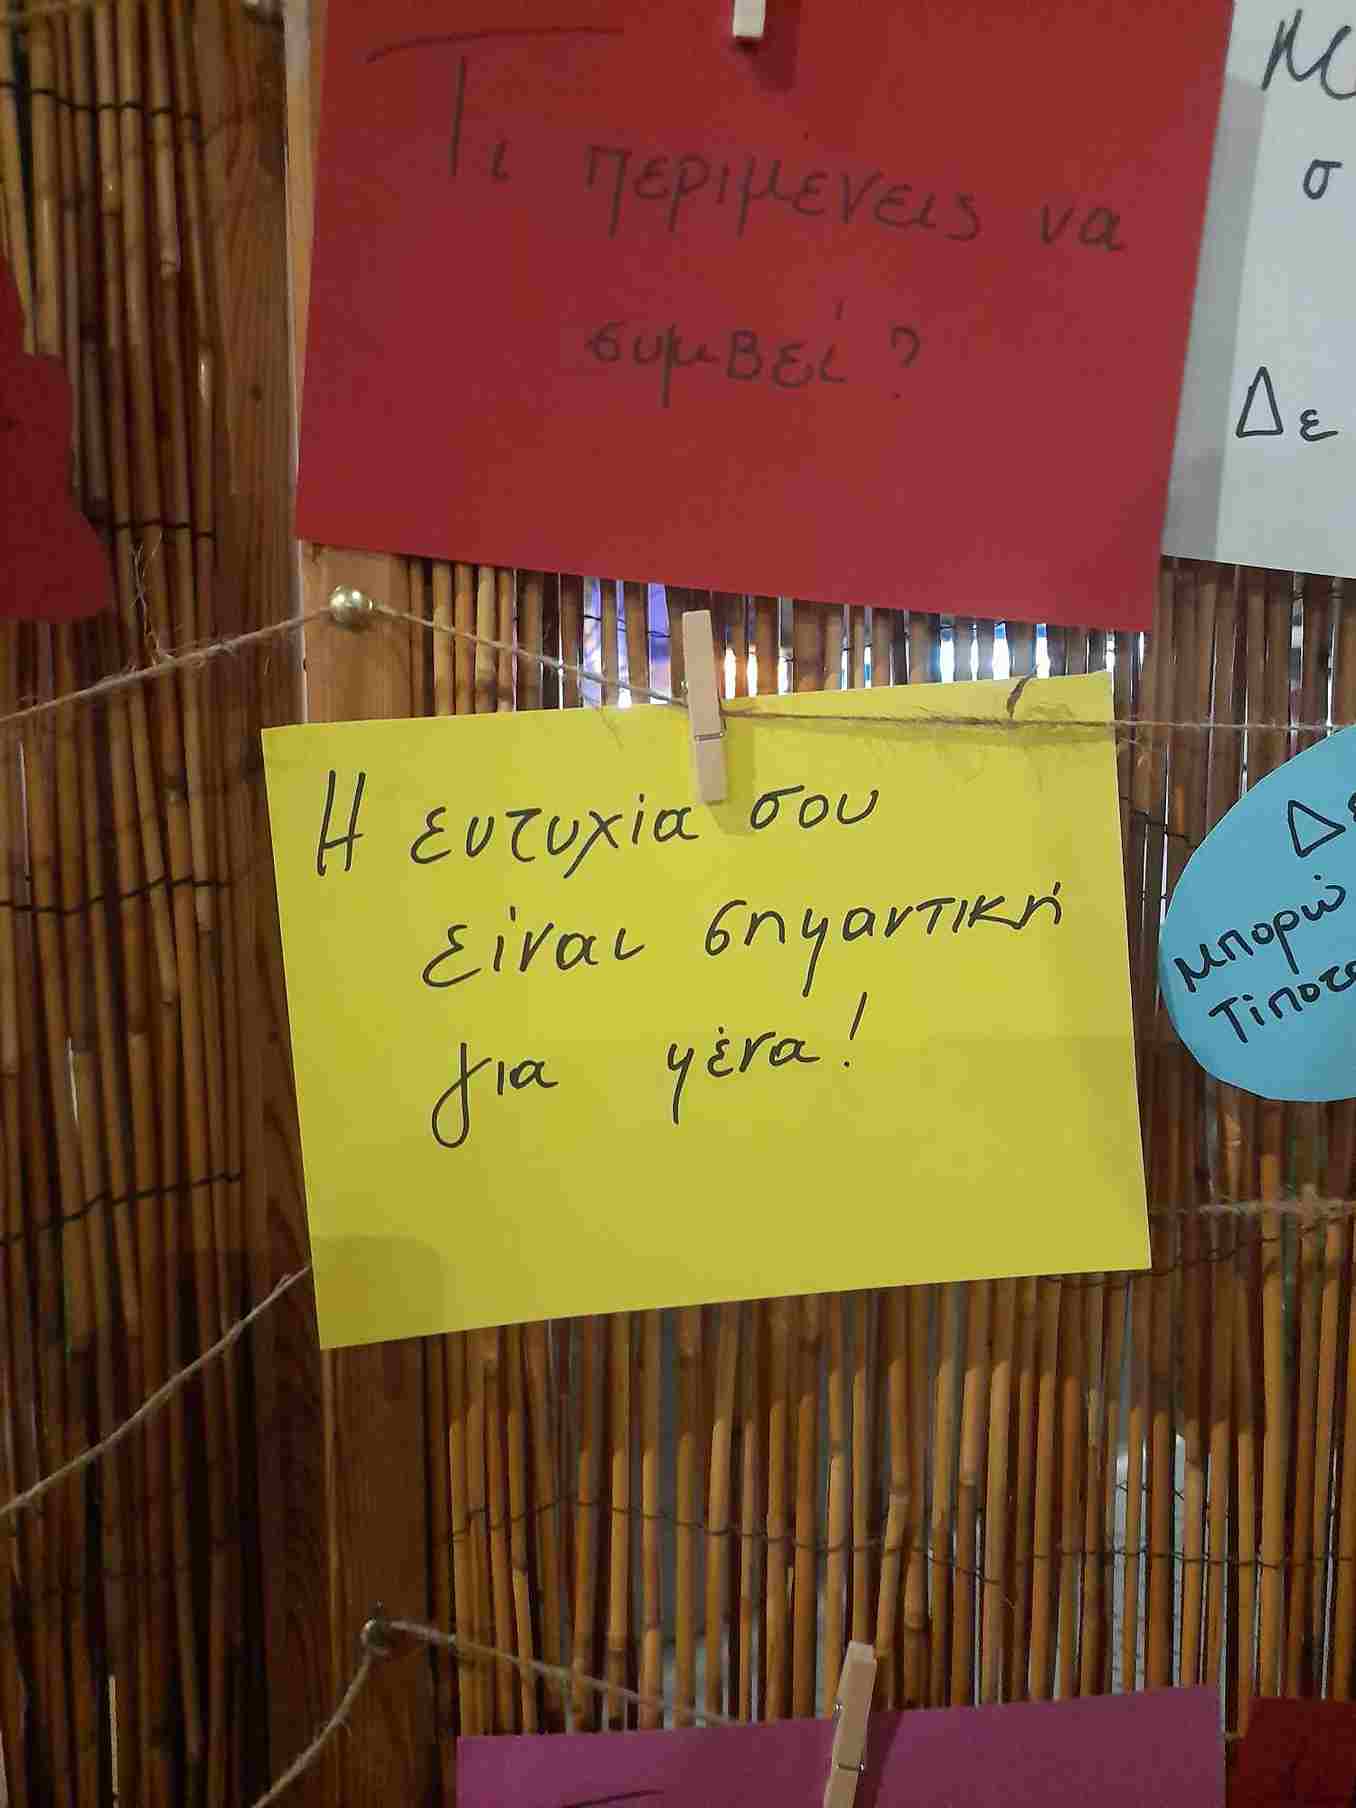 Τι περιμενεις να
συμβεί?
Δε
Η ευτυχία σου
είναι σημαντική
για μένα!
μπορώ